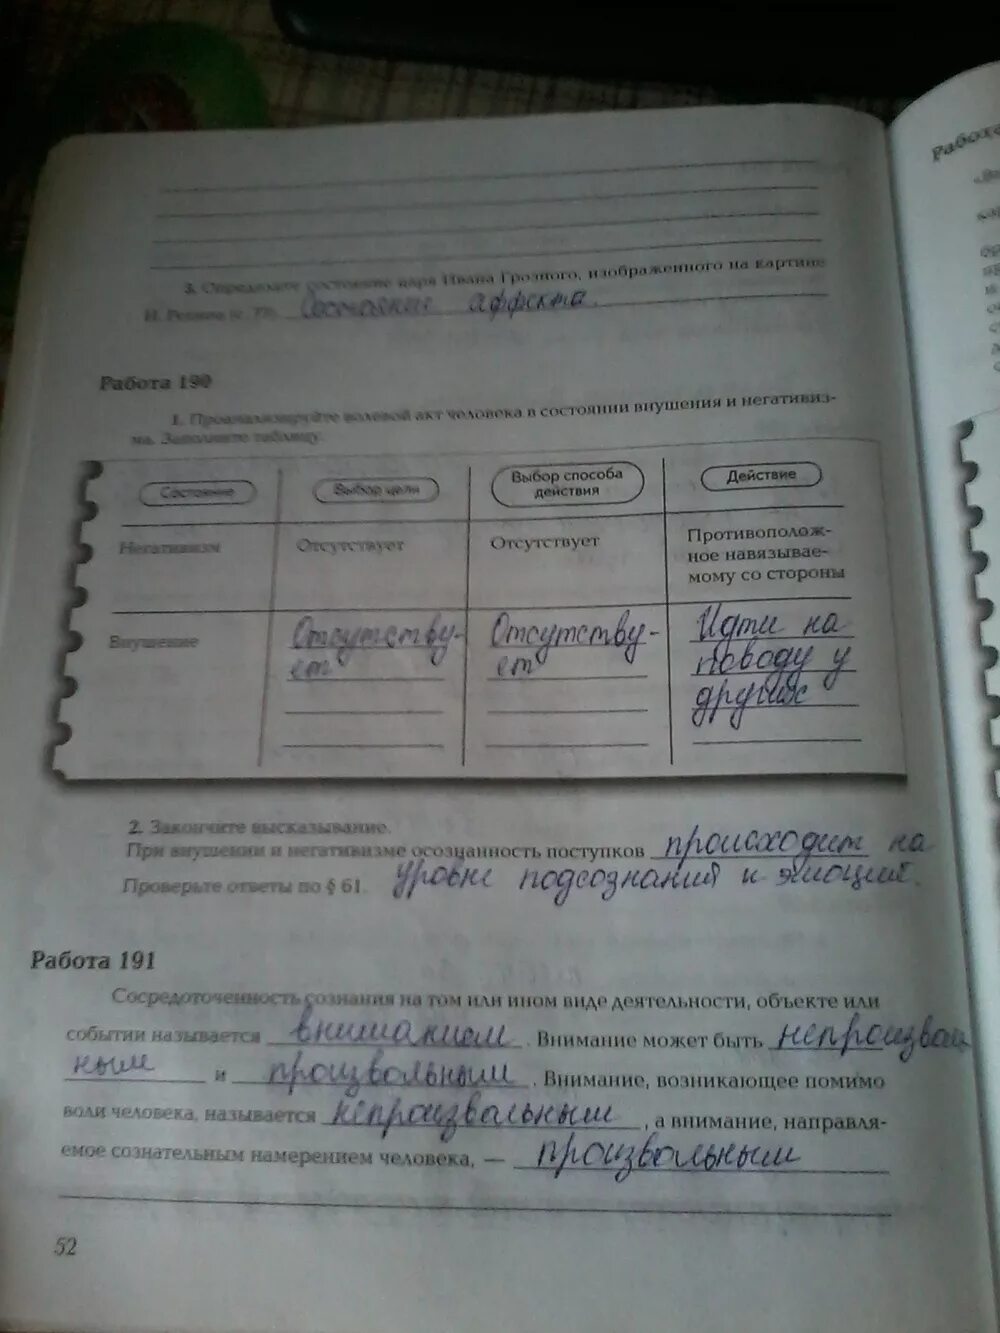 3. Определите состояние царя Ивана Грозного, изображенного на картине
И. Репина (с. 77). Состояние аффекта.
Работа 190
1. Проанализируйте волевой акт человека в состоянии внушения и негативиз-
ма. Заполните таблицу.
Состояние
Выбор цели
Выбор способа
действия
Действие
Негативизм
Отсутствует
Отсутствует
Противополож-
ное навязывае-
мому со стороны
Внушение
Отсутству-
ет
Отсутству-
ет
Идти на
поводу у
других
2. Закончите высказывание.
При внушении и негативизме осознанность поступков происходит на
Проверьте ответы по § 61. уровне подсознаний и эмоций.
Работа 191
Сосредоточенность сознания на том или ином виде деятельности, объекте или
событии называется вниманием. Внимание может быть непроизволь
ным и произвольным. Внимание, возникающее помимо
воли человека, называется непроизвольным, а внимание, направля-
емое сознательным намерением человека, — произвольным
52
Работа